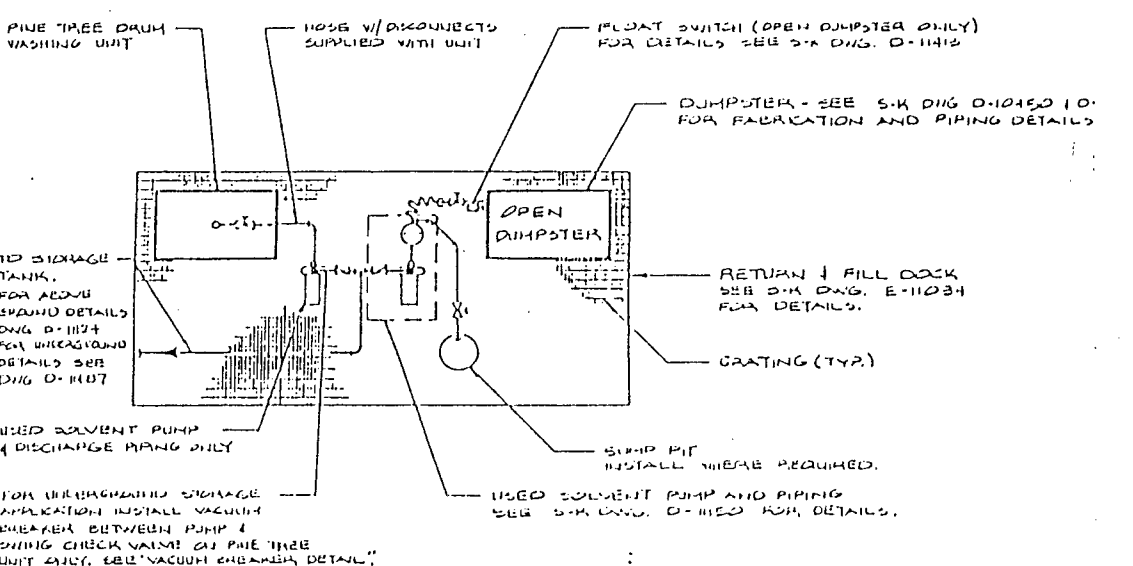 PINE TREE DRUM
WASHING UNIT
HOSE W/ DISCONNECTS
SUPPLIED WITH UNIT
FLOAT SWITCH (OPEN DUMPSTER ONLY)
FOR DETAILS SEE S-K DWG. D-11413
DUMPSTER - SEE S-K DWG
FOR FABRICATION AND PIPING DETAILS
OPEN
DUMPSTER
TO STORAGE
TANK.
FOR ABOVE
GROUND DETAILS
DWG D-1124
FOR UNDERGROUND
DETAILS SEE
DWG D-11187
RETURN & FILL DOCK
SEE S-K DWG. E-11034
FOR DETAILS.
GRATING (TYP.)
USED SOLVENT PUMP
& DISCHARGE PIPING ONLY
SUMP PIT
INSTALL WHERE REQUIRED.
FOR UNDERGROUND STORAGE
APPLICATION INSTALL VACUUM
BREAKER BETWEEN PUMP &
SWING CHECK VALVE ON PINE TREE
UNIT ONLY. SEE "VACUUM BREAKER DETAIL".
USED SOLVENT PUMP AND PIPING
SEE S-K DWG. D-11150 FOR DETAILS.